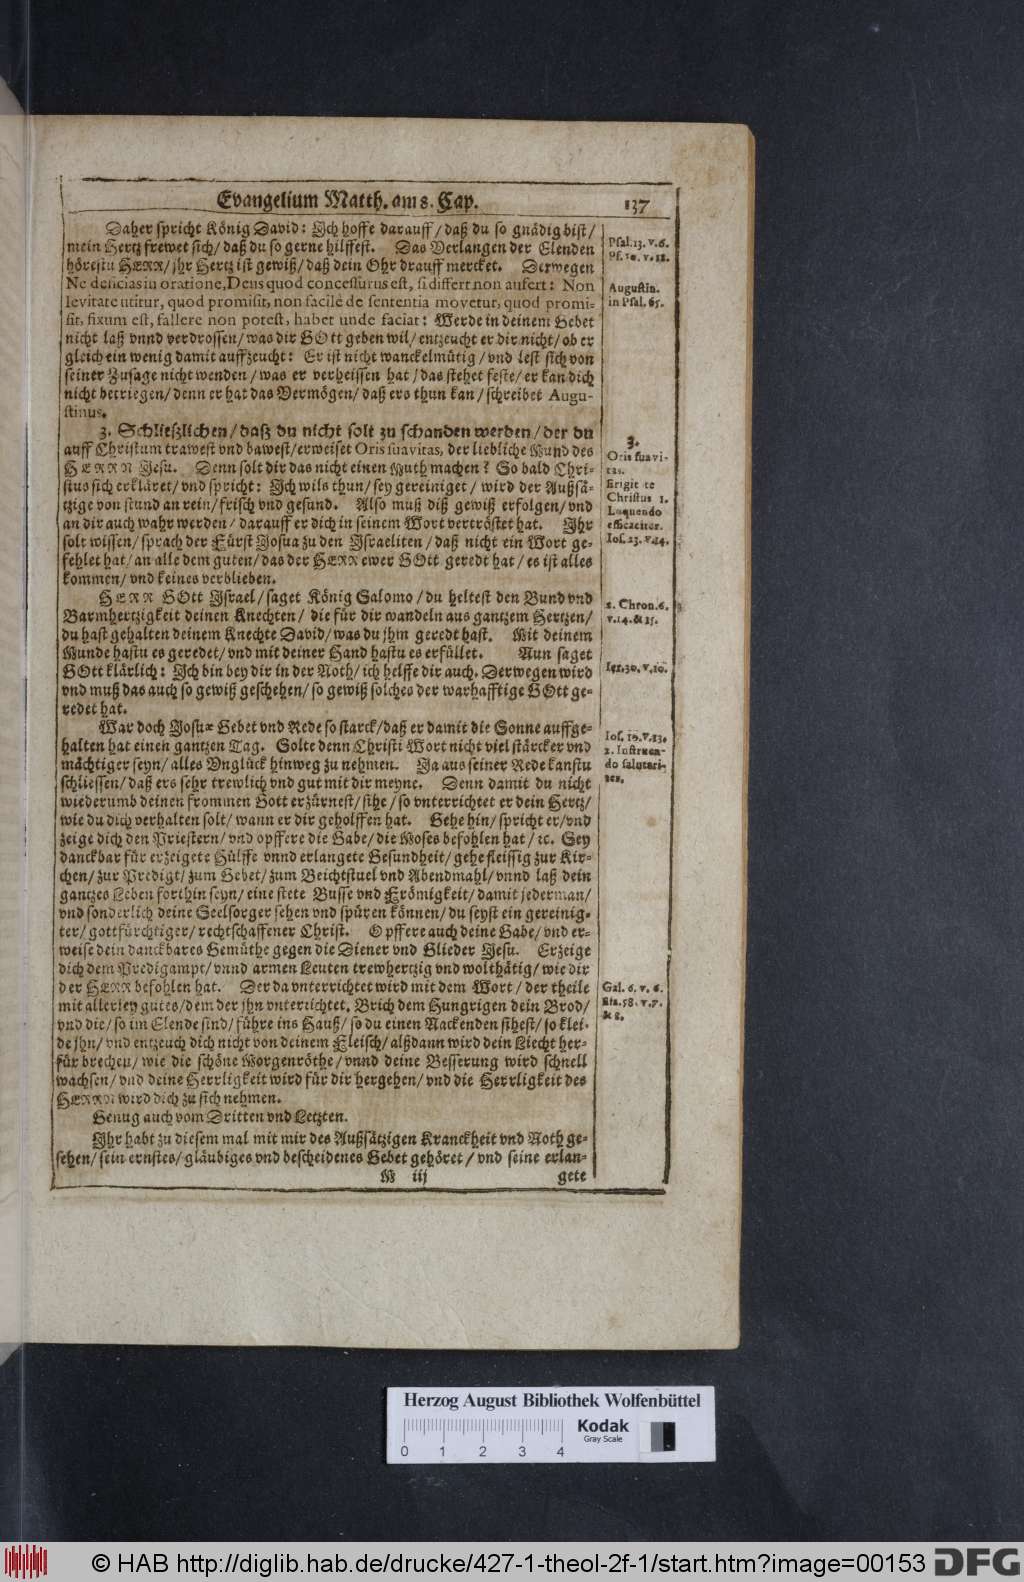 Evangelium Matth. am 8. Cap.
137
Daher spricht König David: Ich hoffe darauff/ daß du so gnädig bist/
mein Hertz frewet sich/ daß du so gerne hilffest. Das Verlangen der Elenden
hörestu HERR/ jhr Hertz ist gewiß/ daß dein Ohr drauff mercket. Derwegen
Ne deficias in oratione, Deus quod concessurus est, si differt non aufert: Non
levitate utitur, quod promisit, non facilè de sententia movetur, quod promi-
sit, fixum est, fallere non potest, habet unde faciat: Werde in deinem Gebet
nicht laß vnnd verdrossen/ was dir GOtt geben wil/ entzeucht er dir nicht/ ob er
gleich ein wenig damit auffzeucht: Er ist nicht wanckelmütig/ vnd lest sich von
seiner Zusage nicht wenden/ was er verheissen hat/ das stehet feste/ er kan dich
nicht betriegen/ denn er hat das Vermögen/ daß ers thun kan/ schreibet Augu-
stinus.
3. Schließlichen/ daß du nicht solt zu schanden werden/ der du
auff Christum trawest vnd bawest/ erweiset Oris suavitas, der liebliche Mund des
HERRN Jesu. Denn solt dir das nicht einen Muth machen? So bald Chri-
stus sich erkläret/ vnd spricht: Ich wils thun/ sey gereiniget/ wird der Außsä-
tzige von stund an rein/ frisch vnd gesund. Also muß diß gewiß erfolgen/ vnd
an dir auch wahr werden/ darauff er dich in seinem Wort vertröstet hat. Ihr
solt wissen/ sprach der Fürst Josua zu den Israeliten/ daß nicht ein Wort ge-
fehlet hat/ an alle dem guten/ das der HERR ewer GOtt geredt hat/ es ist alles
kommen/ vnd keines verblieben.
HERR GOtt Israel/ saget König Salomo/ du heltest den Bund vnd
Barmhertzigkeit deinen Knechten/ die für dir wandeln aus gantzem Hertzen/
du hast gehalten deinem Knechte David/ was du jhm geredt hast. Mit deinem
Munde hastu es geredet/ vnd mit deiner Hand hastu es erfüllet. Nun saget
GOtt klärlich: Ich bin bey dir in der Noth/ ich helffe dir auch. Derwegen wird
vnd muß das auch so gewiß geschehen/ so gewiß solches der warhafftige GOtt ge-
redet hat.
War doch Josuæ Gebet vnd Rede so starck/ daß er damit die Sonne auffge-
halten hat einen gantzen Tag. Solte denn Christi Wort nicht viel stärcker vnd
mächtiger seyn/ alles Vnglück hinweg zu nehmen. Ja aus seiner Rede kanstu
schliessen/ daß ers sehr trewlich vnd gut mit dir meyne. Denn damit du nicht
wiederumb deinen frommen Gott erzürnest/ sihe/ so vnterrichtet er dein Hertz/
wie du dich verhalten solt/ wann er dir geholffen hat. Gehe hin/ spricht er/ vnd
zeige dich den Priestern/ vnd opffere die Gabe/ die Moses befohlen hat/ ꝛc. Sey
danckbar für erzeigete Hülffe vnnd erlangete Gesundheit/ gehe fleissig zur Kir-
chen/ zur Predigt/ zum Gebet/ zum Beichtstuel vnd Abendmahl/ vnnd laß dein
gantzes Leben forthin seyn/ eine stete Busse vnd Frömigkeit/ damit jederman/
vnd sonderlich deine Seelsorger sehen vnd spüren können/ du seyst ein gereinig-
ter/ gottfürchtiger/ rechtschaffener Christ. Opffere auch deine Gabe/ vnd er-
weise dein danckbares Gemüthe gegen die Diener vnd Glieder Jesu. Erzeige
dich dem Predigampt/ vnnd armen Leuten trewhertzig vnd wolthätig/ wie dir
der HERR befohlen hat. Der da vnterrichtet wird mit dem Wort/ der theile
mit allerley gutes/ dem der jhn vnterrichtet. Brich dem Hungrigen dein Brod/
vnd die/ so im Elende sind/ führe ins Hauß/ so du einen Nackenden sihest/ so klei-
de jhn/ vnd entzeuch dich nicht von deinem Fleisch/ alßdann wird dein Liecht her-
für brechen/ wie die schöne Morgenröthe/ vnnd deine Besserung wird schnell
wachsen/ vnd deine Herrligkeit wird für dir hergehen/ vnd die Herrligkeit des
HERRN wird dich zu sich nehmen.
Genug auch vom Dritten vnd Letzten.
Ihr habt zu diesem mal mit mir des Außsätzigen Kranckheit vnd Noth ge-
sehen/ sein ernstes/ gläubiges vnd bescheidenes Gebet gehöret/ vnd seine erlan-
M iij
gete
Psal. 13. v. 6.
Ps. 10. v. 18.
Augustin.
in Psal. 65.
3.
Oris suavi-
tas.
Erigit te
Christus 1.
Loquendo
efficaciter.
Ios. 23. v. 14.
2. Chron. 6.
v. 14. & 15.
Ios. 10. v. 13.
2. Instruen-
do salutari-
ter.
Gal. 6. v. 6.
Esa. 58. v. 7.
& 8.
Herzog August Bibliothek Wolfenbüttel
Kodak
Gray Scale
0 1 2 3 4
© HAB http://diglib.hab.de/drucke/427-1-theol-2f-1/start.htm?image=00153
DFG